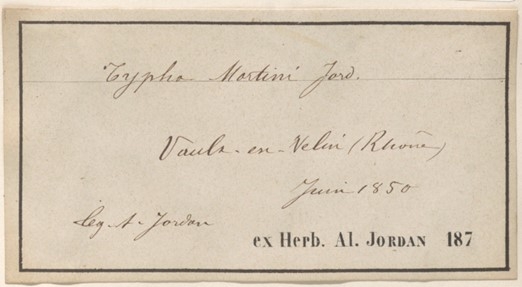 Typha Martini Jord.
Vaulx-en-Velin (Rhône)
Juin 1850
Leg. A. Jordan
ex Herb. Al. JORDAN 187